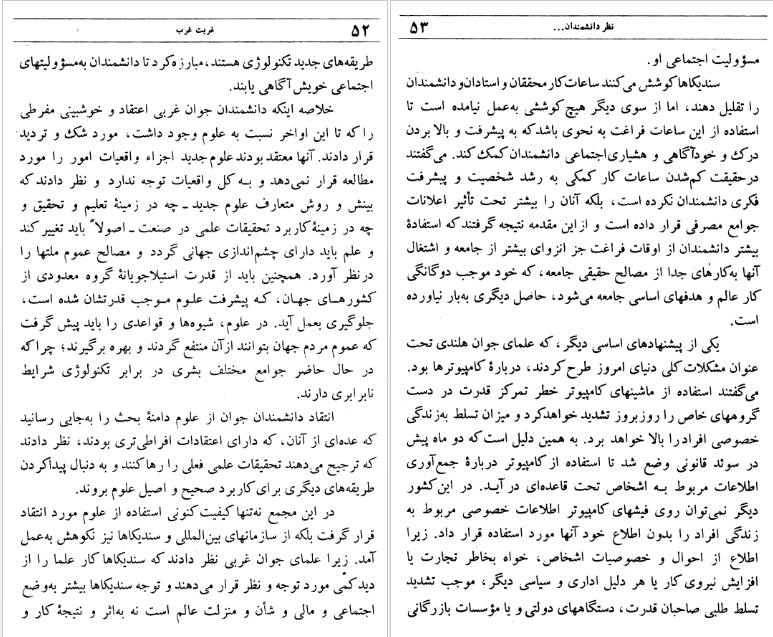 غربت غرب ۵۲
طریقه‌های جدید تکنولوژی هستند، مبارزه کرد تا دانشمندان به‌مسؤولیتهای
اجتماعی خویش آگاهی یابند.
خلاصه اینکه دانشمندان جوان غربی اعتقاد و خوشبینی مفرطی
را که تا این اواخر نسبت به علوم وجود داشت، مورد شک و تردید
قرار دادند. آنها معتقد بودند علوم جدید اجزاء واقعیات امور را مورد
مطالعه قرار نمی‌دهد و به کل واقعیات توجه ندارد و نظر دادند که
بینش و روش متعارف علوم جدید ـ چه در زمینهٔ تعلیم و تحقیق و
چه در زمینهٔ کاربرد تحقیقات علمی در صنعت ـ اصولاً باید تغییر کند
و علم باید دارای چشم‌اندازی جهانی گردد و مصالح عموم ملتها را
درنظر آورد. همچنین باید از قدرت استیلاجویانهٔ گروه معدودی از
کشورهای جهان، که پیشرفت علوم موجب قدرتشان شده است،
جلوگیری بعمل آید. در علوم، شیوه‌ها و قواعدی را باید پیش گرفت
که عموم مردم جهان بتوانند از آن منتفع گردند و بهره برگیرند؛ چرا که
در حال حاضر جوامع مختلف بشری در برابر تکنولوژی شرایط
نابرابری دارند.
انتقاد دانشمندان جوان از علوم دامنهٔ بحث را به‌جایی رسانید
که عده‌ای از آنان، که دارای اعتقادات افراطی‌تری بودند، نظر دادند
که ترجیح می‌دهند تحقیقات علمی فعلی را رها کنند و به دنبال پیدا کردن
طریقه‌های دیگری برای کاربرد صحیح و اصیل علوم بروند.
در این مجمع نه‌تنها کیفیت کنونی استفاده از علوم مورد انتقاد
قرار گرفت بلکه از سازمانهای بین‌المللی و سندیکاها نیز نکوهش به‌عمل
آمد. زیرا علمای جوان غربی نظر دادند که سندیکاها کار علما را از
دید کمّی مورد توجه و نظر قرار می‌دهند و توجه سندیکاها بیشتر به‌وضع
اجتماعی و مالی و شأن و منزلت عالم است نه به‌اثر و نتیجهٔ کار و
نظر دانشمندان... ۵۳
مسؤولیت اجتماعی او.
سندیکاها کوشش می‌کنند ساعات کار محققان و استادان و دانشمندان
را تقلیل دهند، اما از سوی دیگر هیچ کوششی به‌عمل نیامده است تا
استفاده از این ساعات فراغت به نحوی باشد که به پیشرفت و بالا بردن
درک و خودآگاهی و هشیاری اجتماعی دانشمندان کمک کند. می‌گفتند
درحقیقت کم‌شدن ساعات کار کمکی به رشد شخصیت و پیشرفت
فکری دانشمندان نکرده است، بلکه آنان را بیشتر تحت تأثیر اعلانات
جوامع مصرفی قرار داده است و از این مقدمه نتیجه گرفتند که استفادهٔ
بیشتر دانشمندان از اوقات فراغت جز انزوای بیشتر از جامعه و اشتغال
آنها به‌کارهای جدا از مصالح حقیقی جامعه، که خود موجب دوگانگی
کار عالم و هدفهای اساسی جامعه می‌شود، حاصل دیگری به‌بار نیاورده
است.
یکی از پیشنهادهای اساسی دیگر، که علمای جوان هلندی تحت
عنوان مشکلات کلی دنیای امروز طرح کردند، دربارهٔ کامپیوترها بود.
می‌گفتند استفاده از ماشینهای کامپیوتر خطر تمرکز قدرت در دست
گروههای خاص را روزبروز تشدید خواهد کرد و میزان تسلط به‌زندگی
خصوصی افراد را بالا خواهد برد. به همین دلیل است که دو ماه پیش
در سوئد قانونی وضع شد تا استفاده از کامپیوتر دربارهٔ جمع‌آوری
اطلاعات مربوط به اشخاص تحت قاعده‌ای درآید. در این کشور
دیگر نمی‌توان روی فیشهای کامپیوتر اطلاعات خصوصی مربوط به
زندگی افراد را بدون اطلاع خود آنها مورد استفاده قرار داد. زیرا
اطلاع از احوال و خصوصیات اشخاص، خواه بخاطر تجارت یا
افزایش نیروی کار یا هر دلیل اداری و سیاسی دیگر، موجب تشدید
تسلط طلبی صاحبان قدرت، دستگاههای دولتی و یا مؤسسات بازرگانی